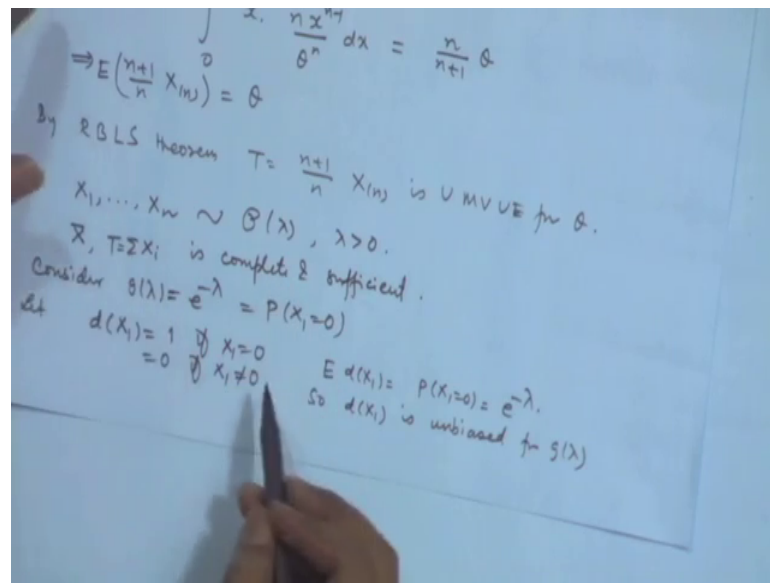 ∫₀ x. nxⁿ⁻¹/θⁿ dx = n/n+1 θ
⇒ E(n+1/n X₍ₙ₎) = θ
By RBLS theorem T = n+1/n X₍ₙ₎ is UMVUE for θ.
X₁, ..., Xₙ ~ P(λ), λ>0.
X̄, T=ΣXᵢ is complete & sufficient.
Consider g(λ) = e^-λ = P(X₁=0)
Let d(X₁) = 1 if X₁=0
=0 if X₁≠0
E d(X₁) = P(X₁=0) = e^-λ.
So d(X₁) is unbiased for g(λ)